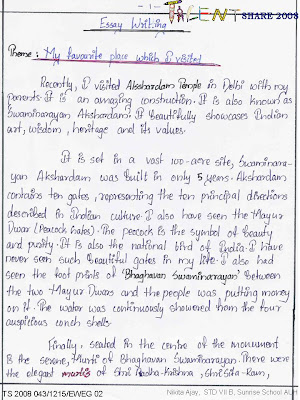 - 1 -
TALENT SHARE 2008
Essay Writing
Theme : My favarite place which I visited
Recently, I visited Akshardam Temple in Delhi with my
parents. It is an amazing construction. It is also known as
Swaminarayan Akshardam. It beautifully showcases Indian
art, wisdom, heritage and its values.
It is set in a vast 100-acre site, Swaminara-
yan Akshardam was built in only 5 years. Akshardam
contains ten gates, representing the ten principal directions
described in Indian culture. I also have seen the Mayur
Dwar (Peacock Gates). The peacock is the symbol of beauty
and purity. It is also the national bird of India. I have
never seen such beautiful gates in my life. I also had
seen the foot prints of 'Bhaghavan Swaminarayan' between
the two Mayur Dwars and the people was putting money
on it. The water was continuously showered from the four
auspitious conch shells.
Finally, seated in the centre of the monument
is the serene, Murti of Bhaghavan Swaminarayan. There were
the elegant murtis of Shri Radha-Krishna, Shri Sita-Ram,
TS 2008 043/1215/EWEG 02
Nikita Ajay, STD VII B, Sunrise School AUH